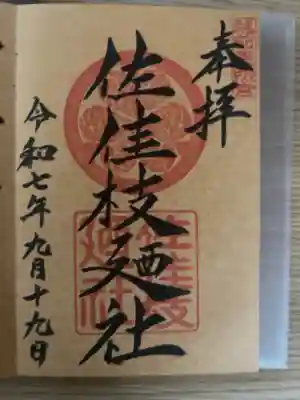 奉拝
佐佳枝廼社
令和七年九月十九日
佐佳枝
廼社